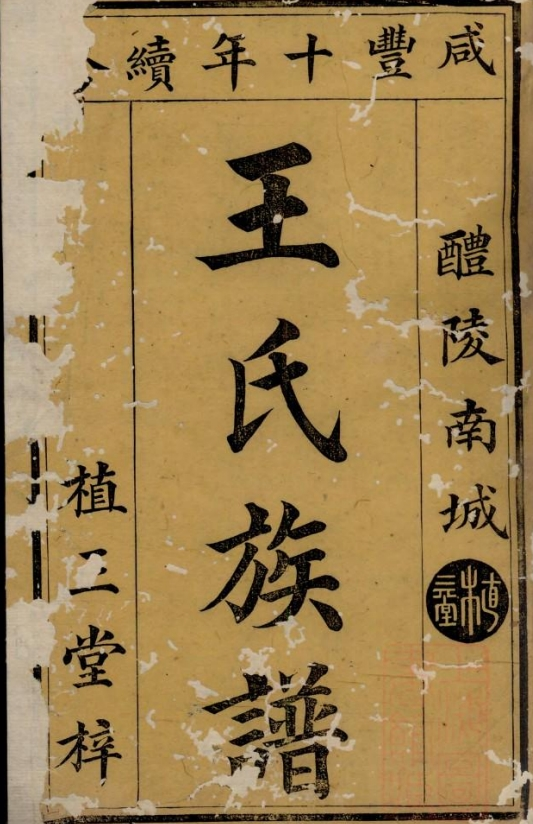 咸豐十年續
醴陵南城
植三堂
王氏族譜
植三堂梓